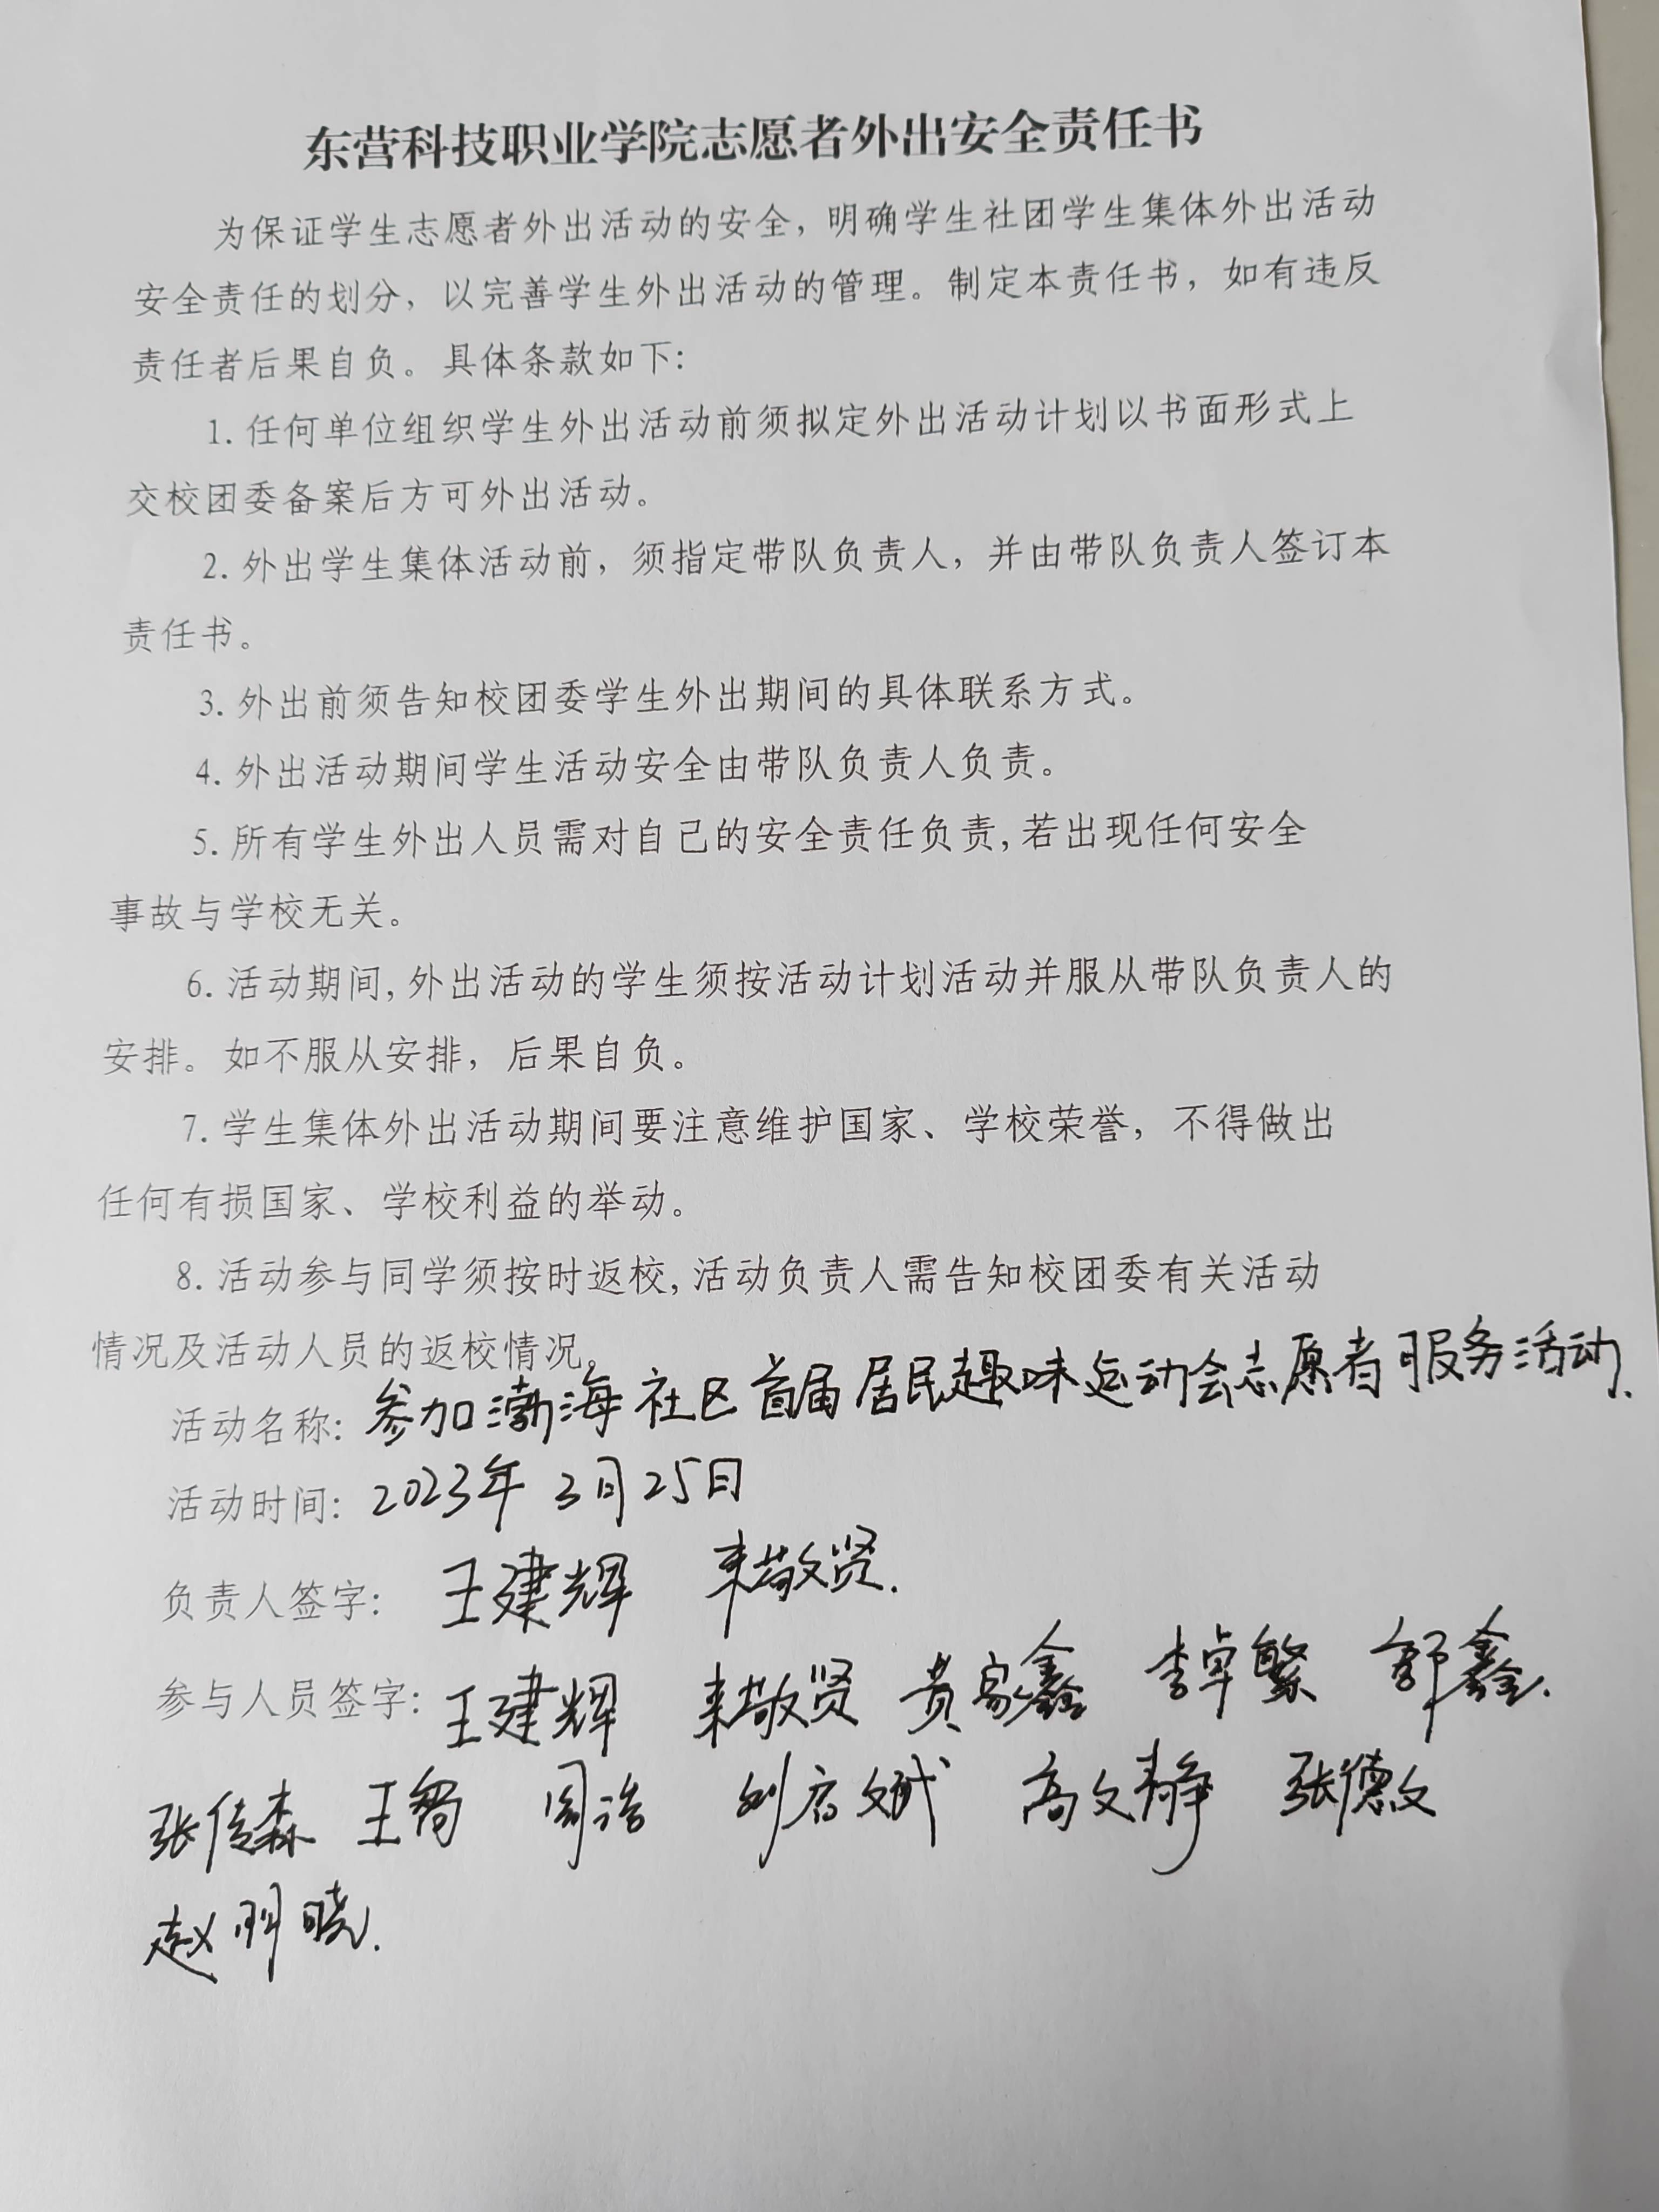 东营科技职业学院志愿者外出安全责任书
为保证学生志愿者外出活动的安全，明确学生社团学生集体外出活动
安全责任的划分，以完善学生外出活动的管理。制定本责任书，如有违反
责任者后果自负。具体条款如下：
1. 任何单位组织学生外出活动前须拟定外出活动计划以书面形式上
交校团委备案后方可外出活动。
2. 外出学生集体活动前，须指定带队负责人，并由带队负责人签订本
责任书。
3. 外出前须告知校团委学生外出期间的具体联系方式。
4. 外出活动期间学生活动安全由带队负责人负责。
5. 所有学生外出人员需对自己的安全责任负责，若出现任何安全
事故与学校无关。
6. 活动期间，外出活动的学生须按活动计划活动并服从带队负责人的
安排。如不服从安排，后果自负。
7. 学生集体外出活动期间要注意维护国家、学校荣誉，不得做出
任何有损国家、学校利益的举动。
8. 活动参与同学须按时返校，活动负责人需告知校团委有关活动
情况及活动人员的返校情况。
活动名称：参加渤海社区首届居民趣味运动会志愿者服务活动.
活动时间：2023年3月25日
负责人签字：王建辉 来敬贤.
参与人员签字：王建辉 来敬贤 黄家鑫 李卓繁 郭鑫.
张传森 王 周浩 刘 斌 高文静 张德文
赵明晓.